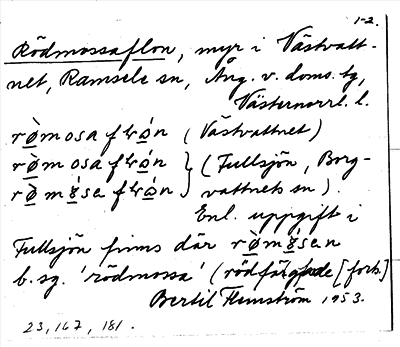 1-2.
Rödmossaflon, myr i Västvatt-
net, Ramsele sn, Ång. v. doms. tg,
Västernorrl. l.
rø̀mosafɫrø̀n (Västvattnet)
rø̀mosafɫrø̀n } (Fullsjön, Borg-
rø̀mø̀́safɫrø̀n } vattnets sn).
Enl. uppgift i
Fullsjön finns där rø̀mø̀́sen
b. sg. 'rödmossa' (rödfärgade [fork.]
Bertil Flemström 1953.
23, 167, 181.